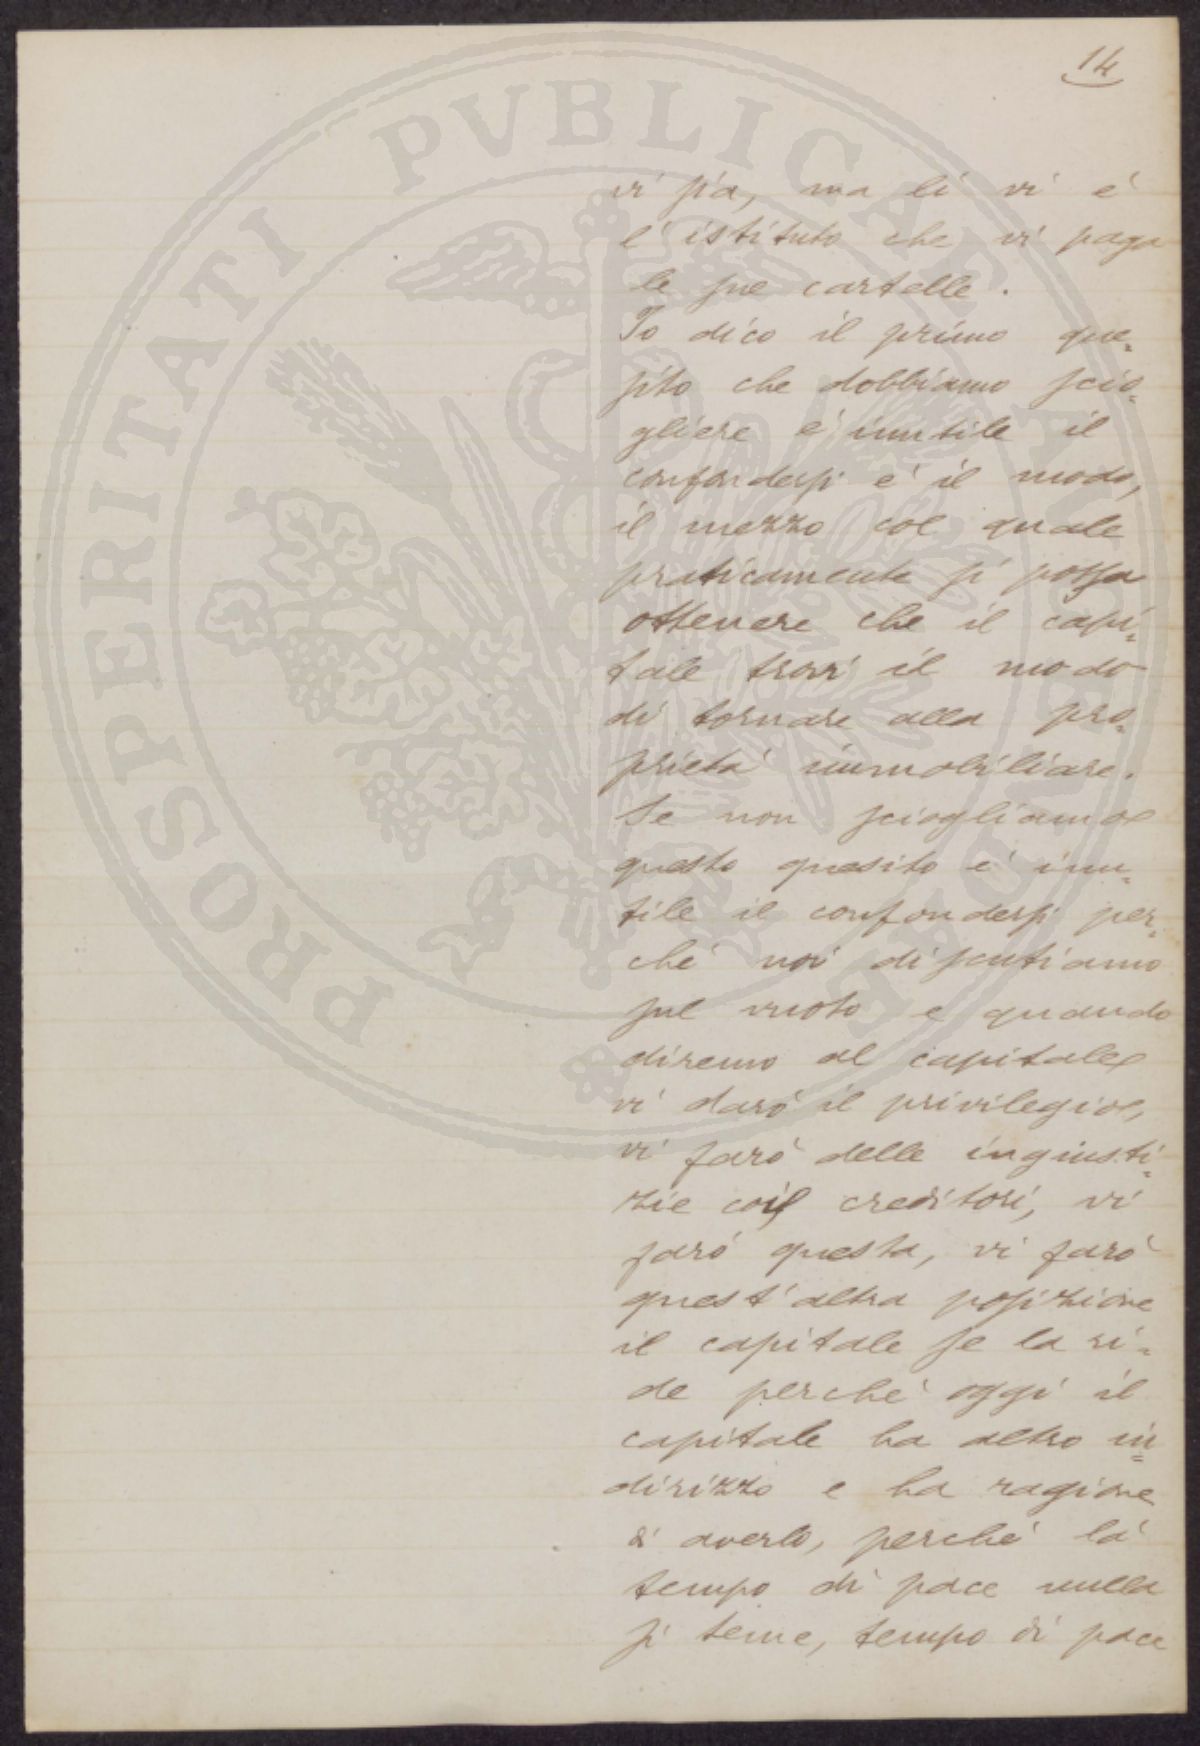 14
vi sia, ma lì vi è
l'istituto che vi paga
le sue cartelle.
Io dico il primo que=
sito che dobbiamo scio=
gliere è inutile il
confondersi è il modo,
il mezzo col quale
praticamente si possa
ottenere che il capi=
tale trovi il modo
di tornare alla pro=
prietà immobiliare.
Se non sciogliamo
questo quesito è inu=
tile il confondersi per=
chè noi discutiamo
sul vuoto e quando
diremo al capitale
vi darò il privilegio,
vi farò delle ingiusti=
zie coi creditori, vi
farò questa, vi farò
quest'altra posizione
il capitale se la ri=
de perchè oggi il
capitale ha altro in=
dirizzo e ha ragione
di averlo, perchè là
tempo di pace nulla
si teme, tempo di pace
PROSPERITATI PVBLICAE AVGENDAE